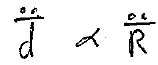 d̄̈ ∝ R̄̈